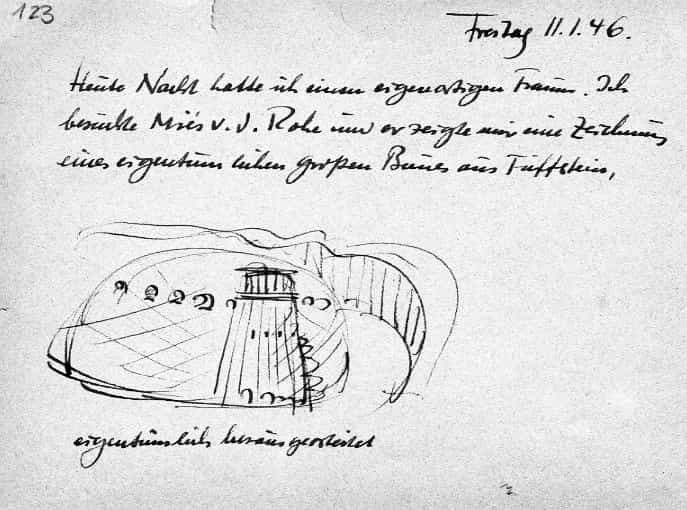 123
Freitag 11.1.46.
Heute Nacht hatte ich einen eigenartigen Traum. Ich
besuchte Mies v. d. Rohe und er zeigte mir eine Zeichnung
eines eigentümlichen großen Baues aus Tuffstein,
eigentümlich herausgearbeitet